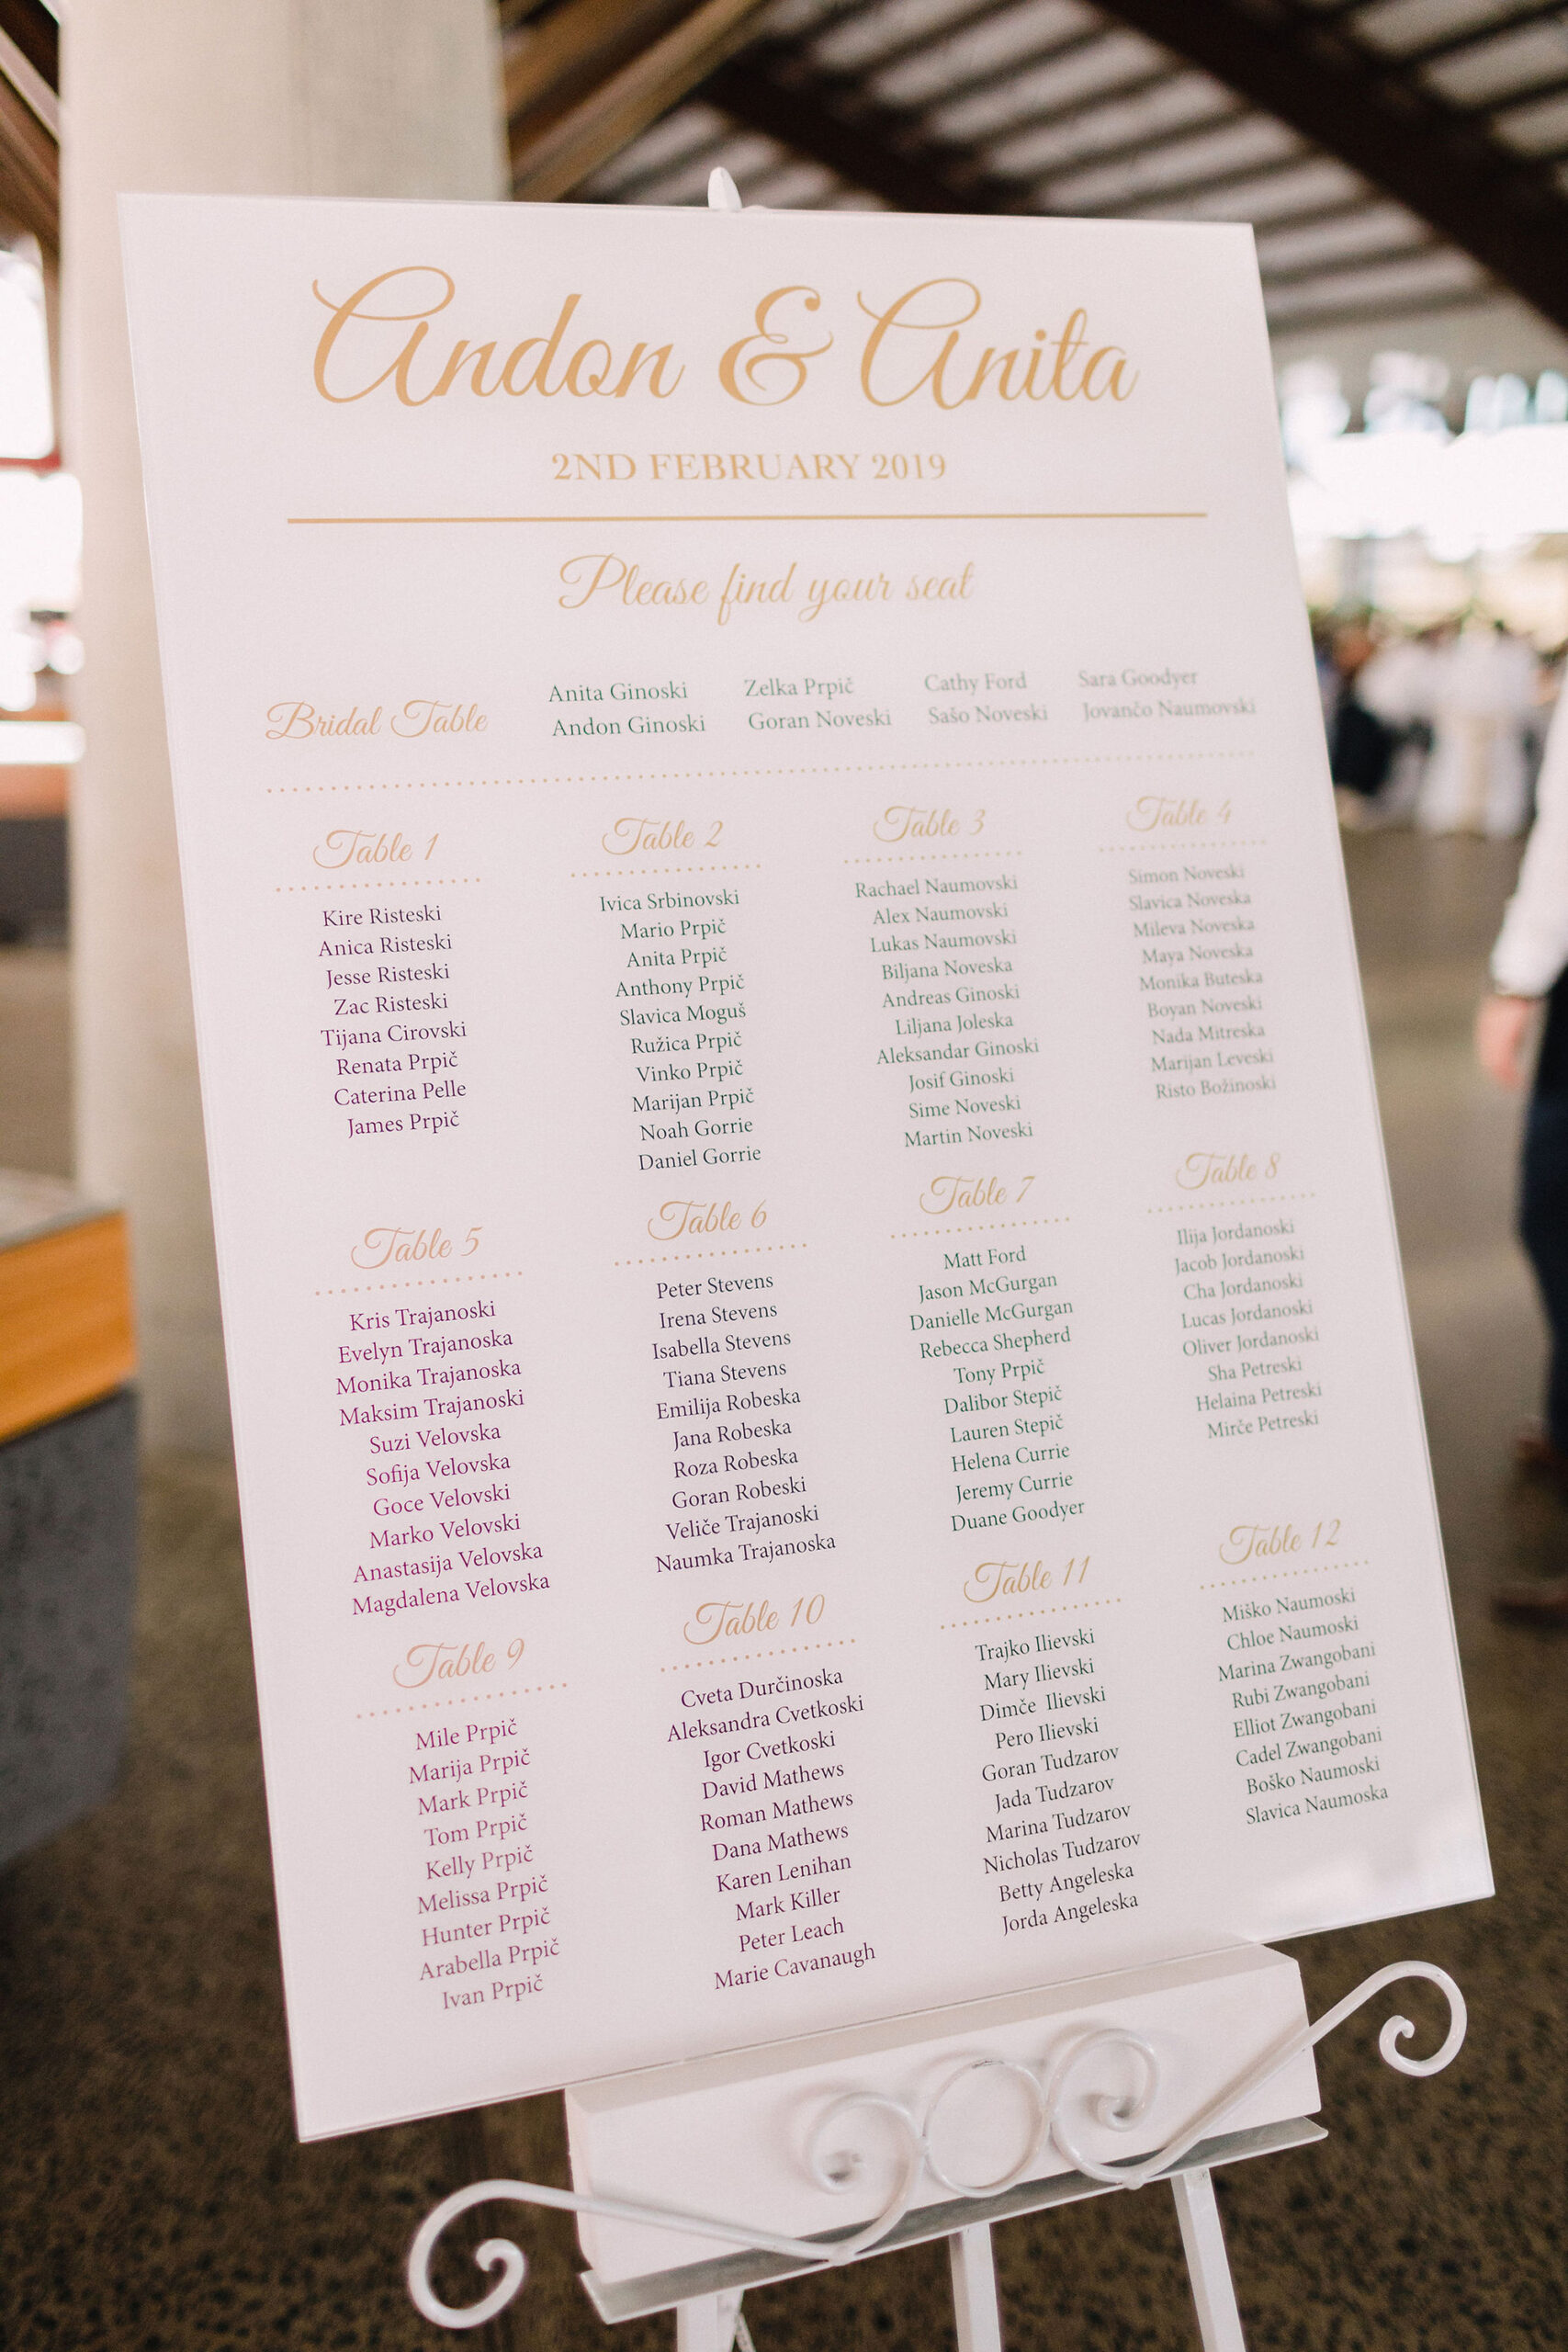 Andon & Anita
2ND FEBRUARY 2019
Please find your seat
Bridal Table
Anita Ginoski Zelka Prpič Cathy Ford Sara Goodyer
Andon Ginoski Goran Noveski Sašo Noveski Jovančo Naumovski
Table 1
Kire Risteski
Anica Risteski
Jesse Risteski
Zac Risteski
Tijana Cirovski
Renata Prpič
Caterina Pelle
James Prpič
Table 2
Ivica Srbinovski
Mario Prpič
Anita Prpič
Anthony Prpič
Slavica Moguš
Ružica Prpič
Vinko Prpič
Marijan Prpič
Noah Gorrie
Daniel Gorrie
Table 3
Rachael Naumovski
Alex Naumovski
Lukas Naumovski
Biljana Noveska
Andreas Ginoski
Liljana Joleska
Aleksandar Ginoski
Josif Ginoski
Sime Noveski
Martin Noveski
Table 4
Simon Noveski
Slavica Noveska
Mileva Noveska
Maya Noveska
Monika Buteska
Boyan Noveski
Nada Mitreska
Marijan Leveski
Risto Božinoski
Table 5
Kris Trajanoski
Evelyn Trajanoska
Monika Trajanoska
Maksim Trajanoski
Suzi Velovska
Sofija Velovska
Goce Velovski
Marko Velovski
Anastasija Velovska
Magdalena Velovska
Table 6
Peter Stevens
Irena Stevens
Isabella Stevens
Tiana Stevens
Emilija Robeska
Jana Robeska
Roza Robeska
Goran Robeski
Veliče Trajanoski
Naumka Trajanoska
Table 7
Matt Ford
Jason McGurgan
Danielle McGurgan
Rebecca Shepherd
Tony Prpič
Dalibor Stepič
Lauren Stepič
Helena Currie
Jeremy Currie
Duane Goodyer
Table 8
Ilija Jordanoski
Jacob Jordanoski
Cha Jordanoski
Lucas Jordanoski
Oliver Jordanoski
Sha Petreski
Helaina Petreski
Mirče Petreski
Table 9
Mile Prpič
Marija Prpič
Mark Prpič
Tom Prpič
Kelly Prpič
Melissa Prpič
Hunter Prpič
Arabella Prpič
Ivan Prpič
Table 10
Cveta Durčinoska
Aleksandra Cvetkoski
Igor Cvetkoski
David Mathews
Roman Mathews
Dana Mathews
Karen Lenihan
Mark Killer
Peter Leach
Marie Cavanaugh
Table 11
Trajko Ilievski
Mary Ilievski
Dimče Ilievski
Pero Ilievski
Goran Tudzarov
Jada Tudzarov
Marina Tudzarov
Nicholas Tudzarov
Betty Angeleska
Jorda Angeleska
Table 12
Miško Naumoski
Chloe Naumoski
Marina Zwangobani
Rubi Zwangobani
Elliot Zwangobani
Cadel Zwangobani
Boško Naumoski
Slavica Naumoska